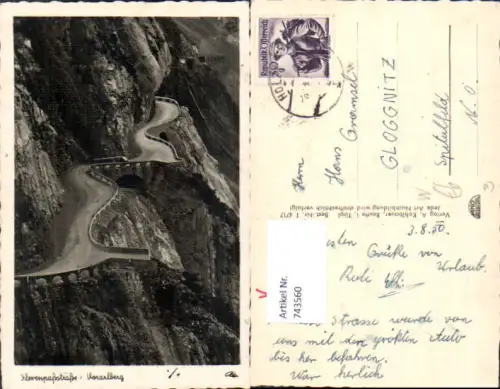 Flexenpaßstraße · Vorarlberg
Republik Österreich
HOL
Herrn
Hans Gramsel
GLOGGNITZ
Spitalfeld
N.Ö.
Verlag A. Kohlbauer, Reutte i. Tirol Best.-Nr. F. 4717
Jede Art Nachbildung wird strafrechtlich verfolgt
3.8.50.
sten Grüße von
Urlaub.
Rudi
Artikel Nr.
743560
Strasse wurde von
uns mit den größten Auto
bis her befahren.
War herlich